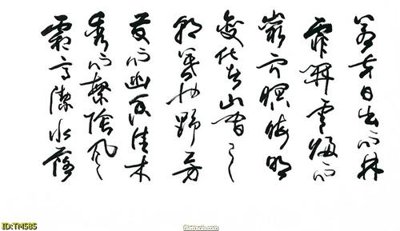 若夫日出而林
霏開雲歸而
巖穴暝晦明
變化者山間之
朝暮也野芳
發而幽香佳木
秀而繁陰風
霜高潔水落
ID:TN585